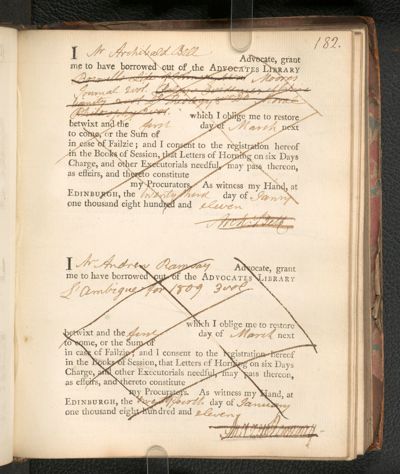 182.
I Mr Archibald Bell Advocate, grant
me to have borrowed out of the ADVOCATES LIBRARY
Moores
Journal 2 vol.
which I oblige me to restore
betwixt and the first day of March next
to come, or the Sum of
in case of Failzie; and I consent to the registration hereof
in the Books of Session, that Letters of Horning on six Days
Charge, and other Executorials needful, may pass thereon,
as effeirs, and thereto constitute
my Procurators. As witness my Hand, at
EDINBURGH, the twenty third day of Janry
one thousand eight hundred and eleven
Arch. Bell
I Mr Andrew Ramsay Advocate, grant
me to have borrowed out of the ADVOCATES LIBRARY
L'Ambigue for 1809 3 vol
which I oblige me to restore
betwixt and the first day of March next
to come, or the Sum of
in case of Failzie; and I consent to the registration hereof
in the Books of Session, that Letters of Horning on six Days
Charge, and other Executorials needful, may pass thereon,
as effeirs, and thereto constitute
my Procurators. As witness my Hand, at
EDINBURGH, the twenty fourth day of January
one thousand eight hundred and eleven